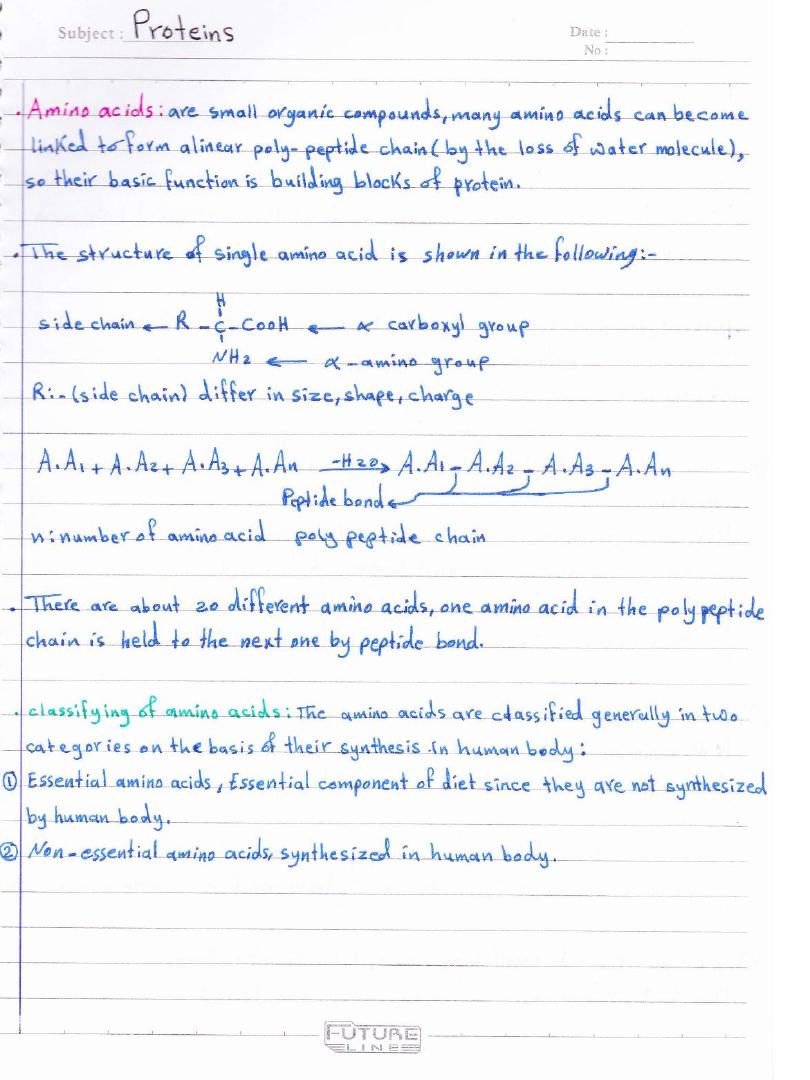 Subject : Proteins
Date :
No :
. Amino acids: are small organic compounds, many amino acids can become
linked to form a linear poly-peptide chain (by the loss of water molecule),
so their basic function is building blocks of protein.
. The structure of single amino acid is shown in the following:-
H
side chain ← R - C - COOH ← α carboxyl group
NH2 ← α-amino group
R:- (side chain) differ in size, shape, charge
A.A1 + A.A2 + A.A3 + A.An -H2O→ A.A1 - A.A2 - A.A3 - A.An
Peptide bond ←
n: number of amino acid poly peptide chain
. There are about 20 different amino acids, one amino acid in the poly peptide
chain is held to the next one by peptide bond.
. classifying of amino acids: The amino acids are classified generally in two
categories on the basis of their synthesis in human body:
① Essential amino acids, Essential component of diet since they are not synthesized
by human body.
② Non-essential amino acids, synthesized in human body.
FUTURE
LINE